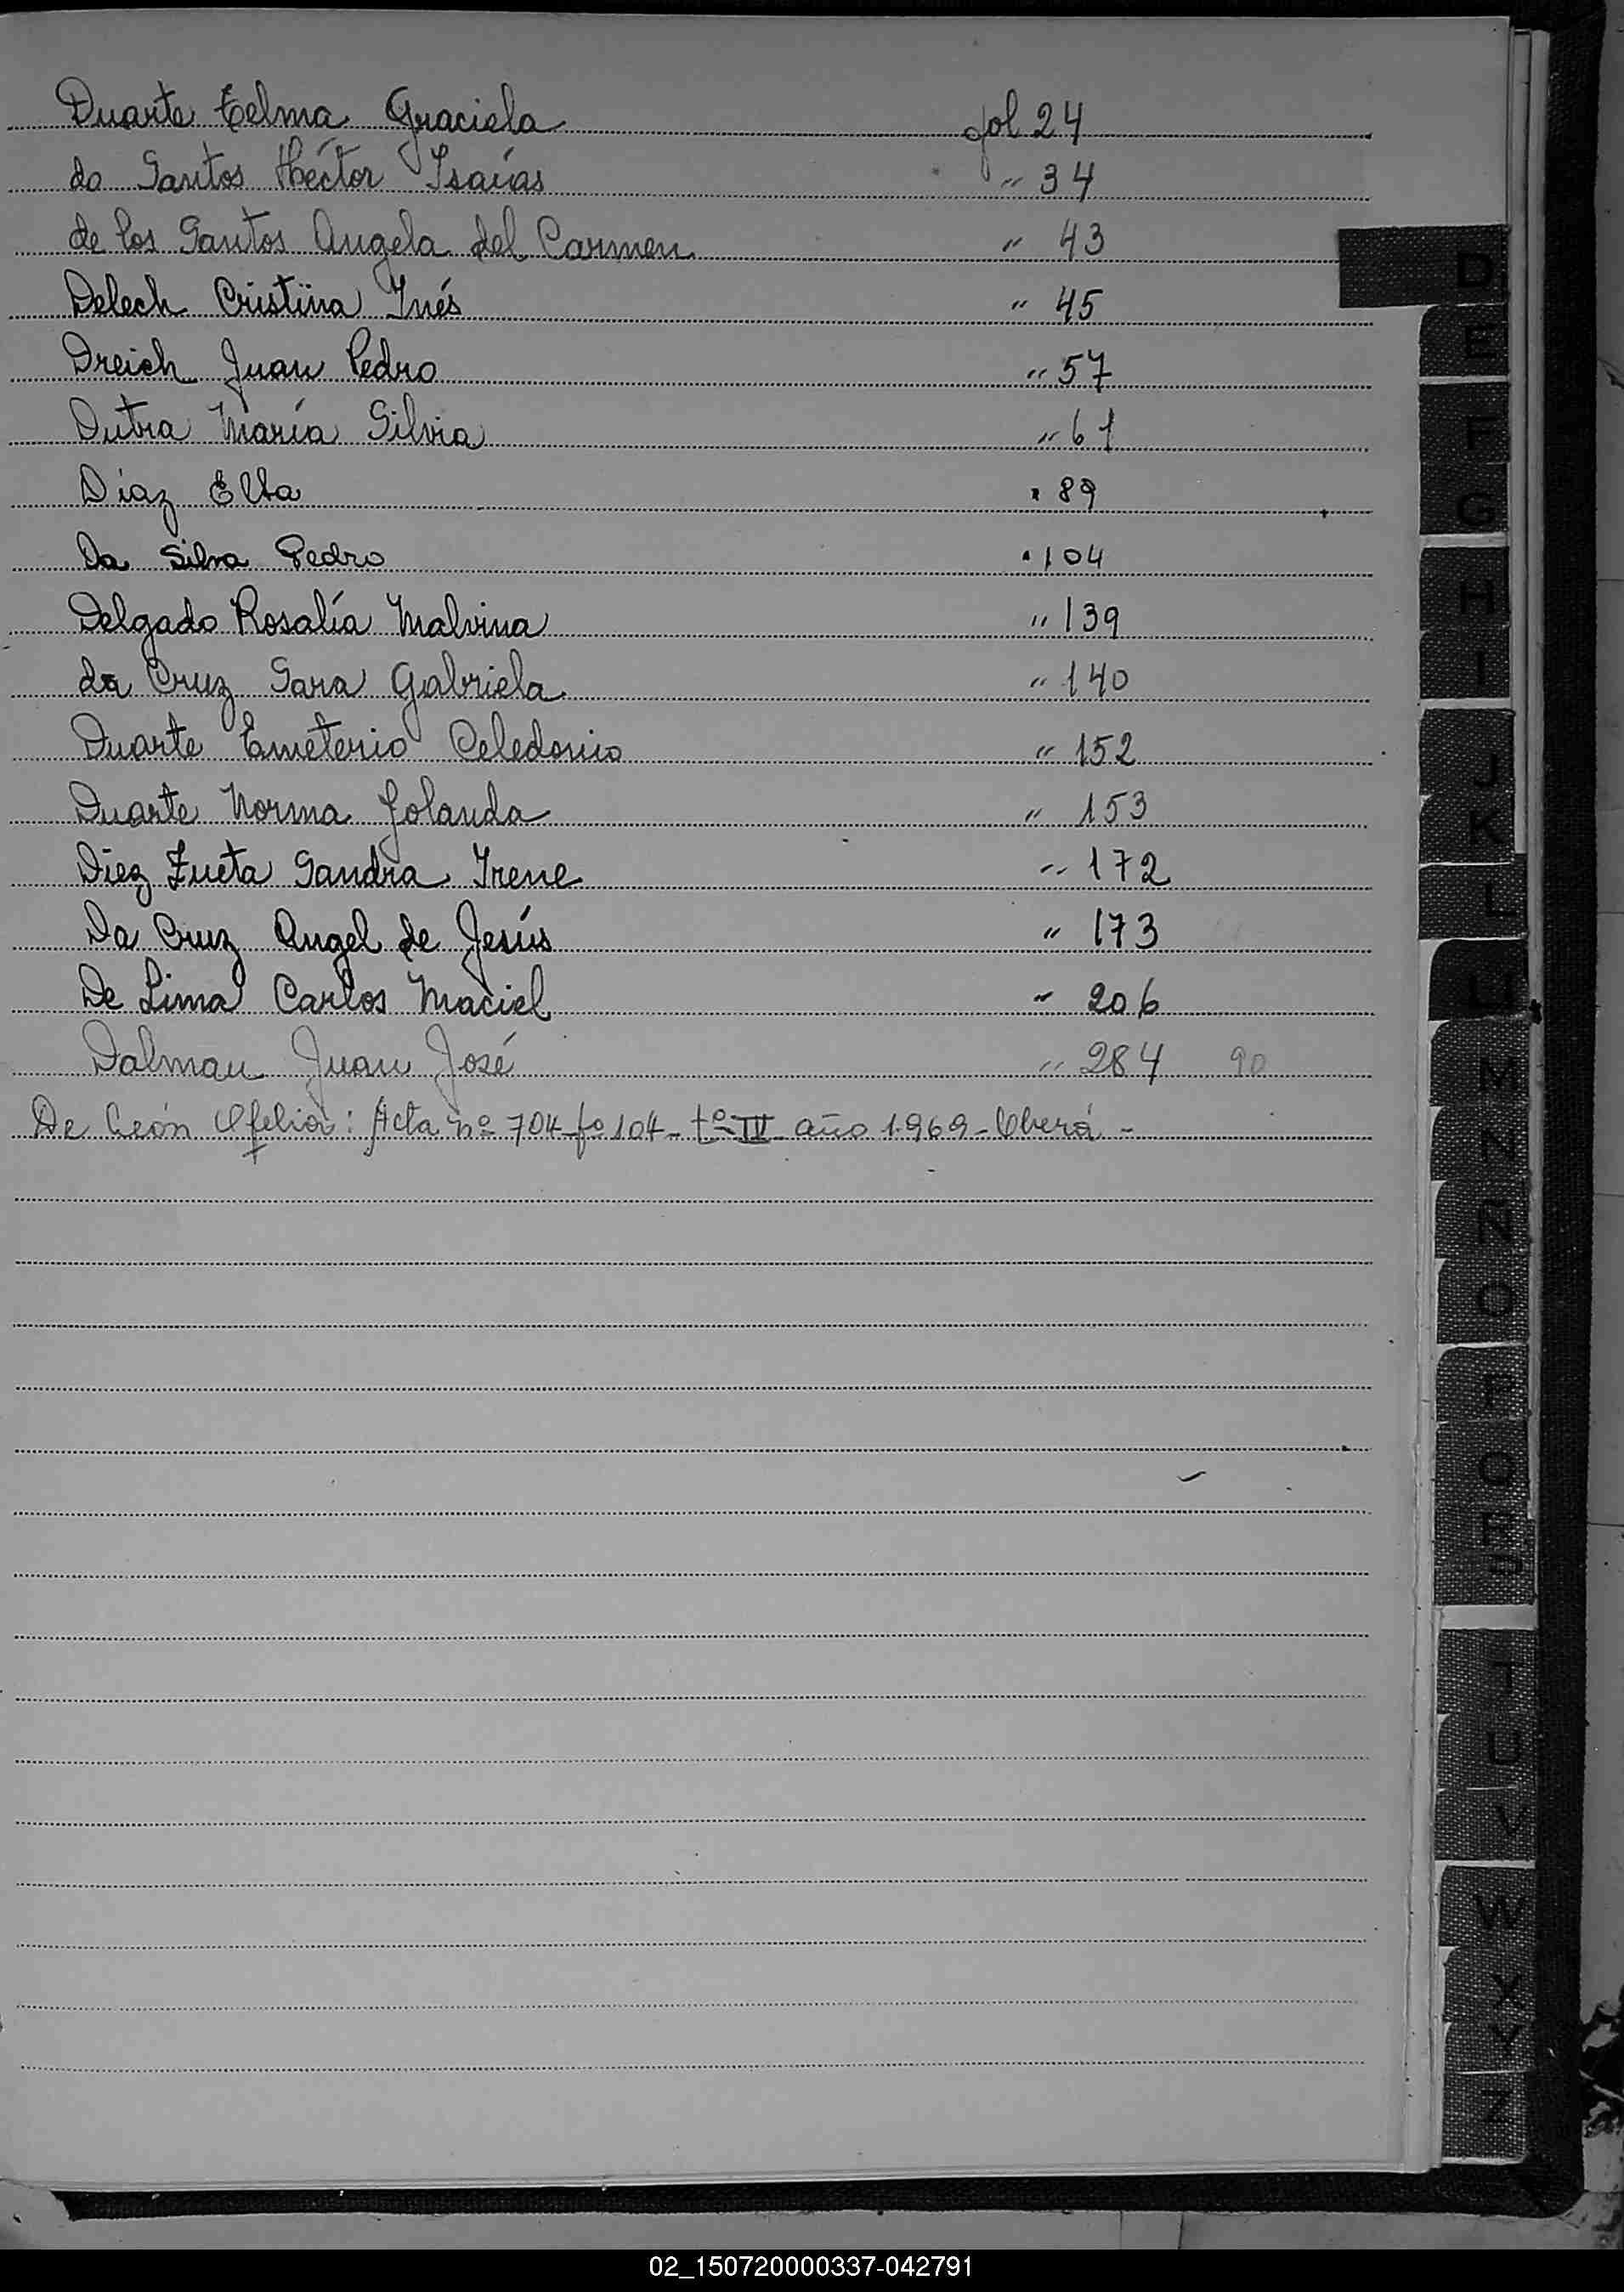 Duarte Telma Graciela fol 24
do Santos Héctor Isaías " 34
de los Santos Angela del Carmen " 43
Delech Cristina Inés " 45
Dreich Juan Pedro " 57
Dutra María Silvia " 61
Díaz Elba " 89
Da Silva Pedro " 104
Delgado Rosalía Malvina " 139
da Cruz Sara Gabriela " 140
Duarte Emeterio Celedonio " 152
Duarte Norma Yolanda " 153
Diez Zueta Sandra Irene " 172
Da Cruz Angel de Jesús " 173
De Lima Carlos Maciel " 206
Dalmau Juan José " 284 90
De León Ofelia: Acta nº 704 fº 104 - tº IV año 1969 - Oberá -
D
E
F
G
H
I
J
K
L
LL
M
N
Ñ
O
P
Q
R
S
T
U
V
W
X
Y
Z
02_150720000337-042791